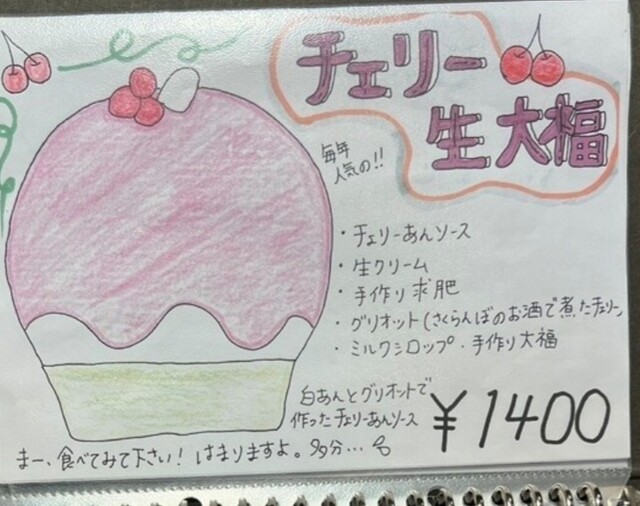 チェリー
生大福
毎年
人気の!!
・チェリーあんソース
・生クリーム
・手作り求肥
・グリオット(さくらんぼのお酒で煮たチェリー)
・ミルクシロップ・手作り大福
白あんとグリオットで
作ったチェリーあんソース
¥1400
まー、食べてみて下さい! はまりますよ。多分…